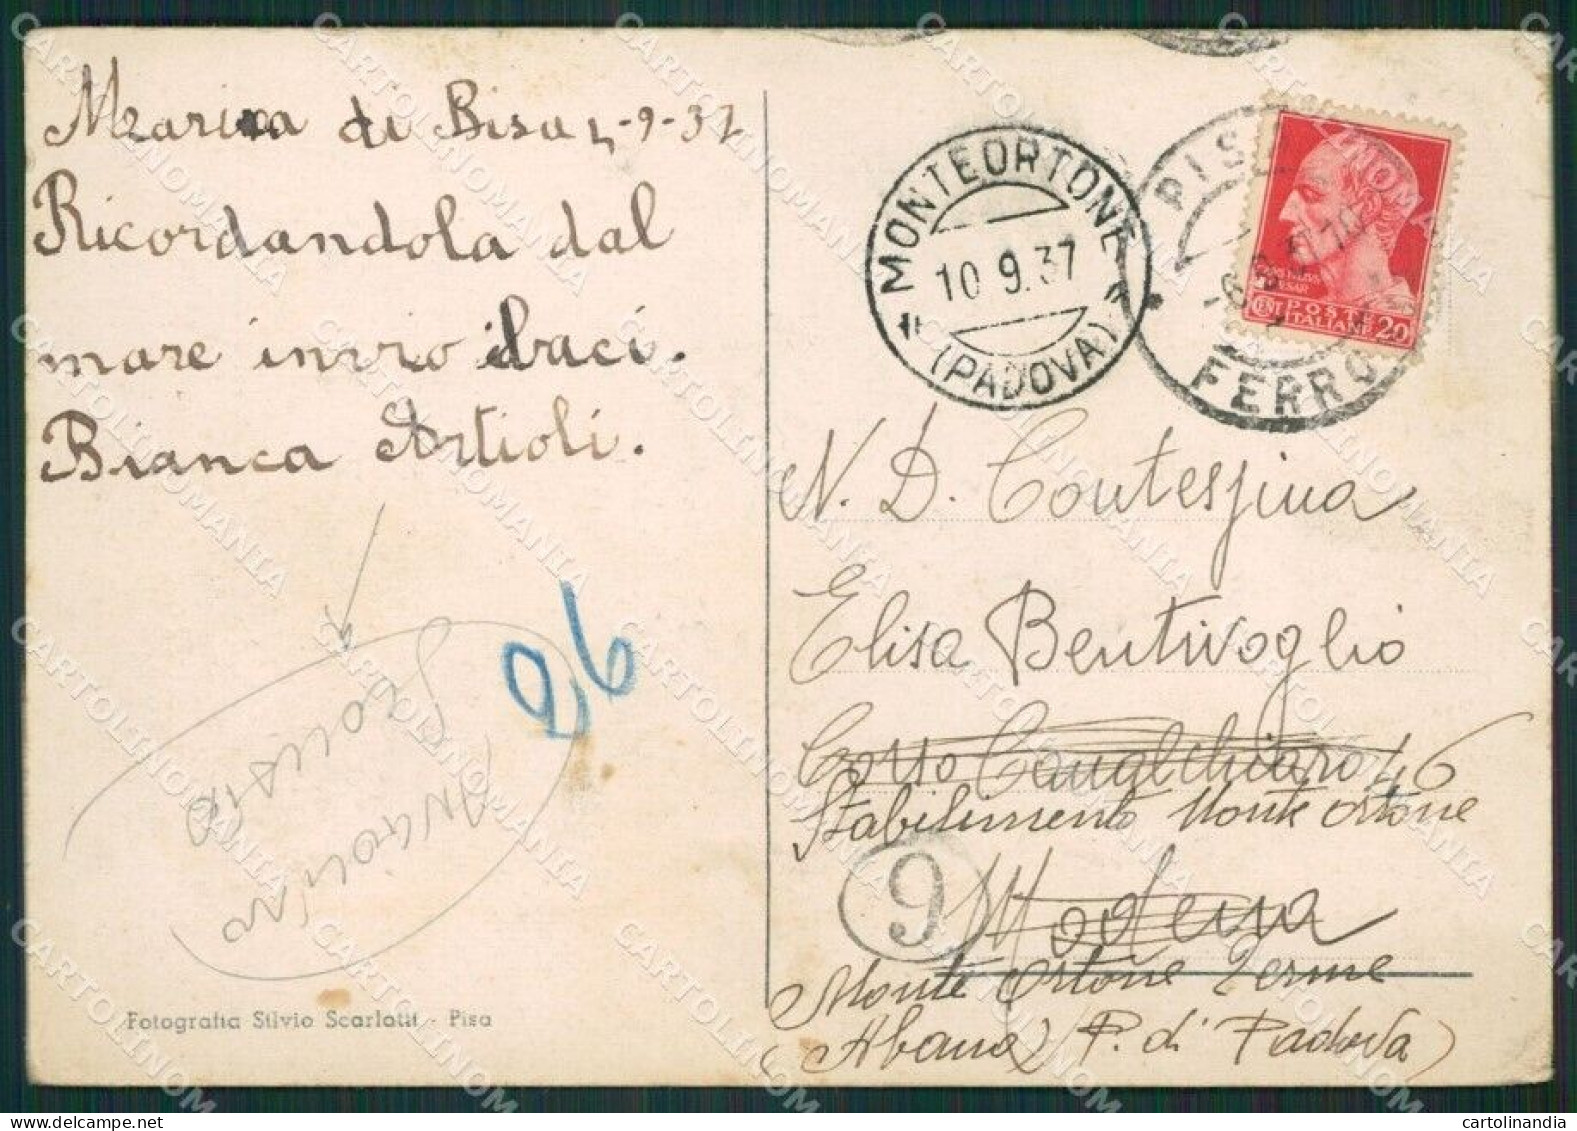 Marina di Bisa 4-9-37
Ricordandola dal
mare invio baci.
Bianca Artioli.
26
Fotografia Silvio Scarlatti - Pisa
MONTEORTONE
10.9.37
(PADOVA)
PISA
FERRO
POSTE
ITALIANE
CENT 20
N. D. Contessina
Elisa Bentivoglio
Corso Canalchiaro 46
Stabilimento Monte Ortone
9
Modena
Monte Ortone Terme
(Abano) P. di Padova)
CARTOLINOMANIA
cartolinandia